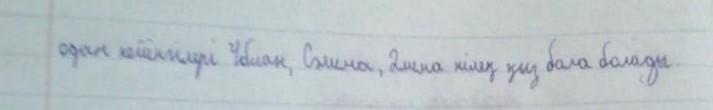 одан кейінгілері Ұлман, Сәлима, Әлима кілең қыз бала болады